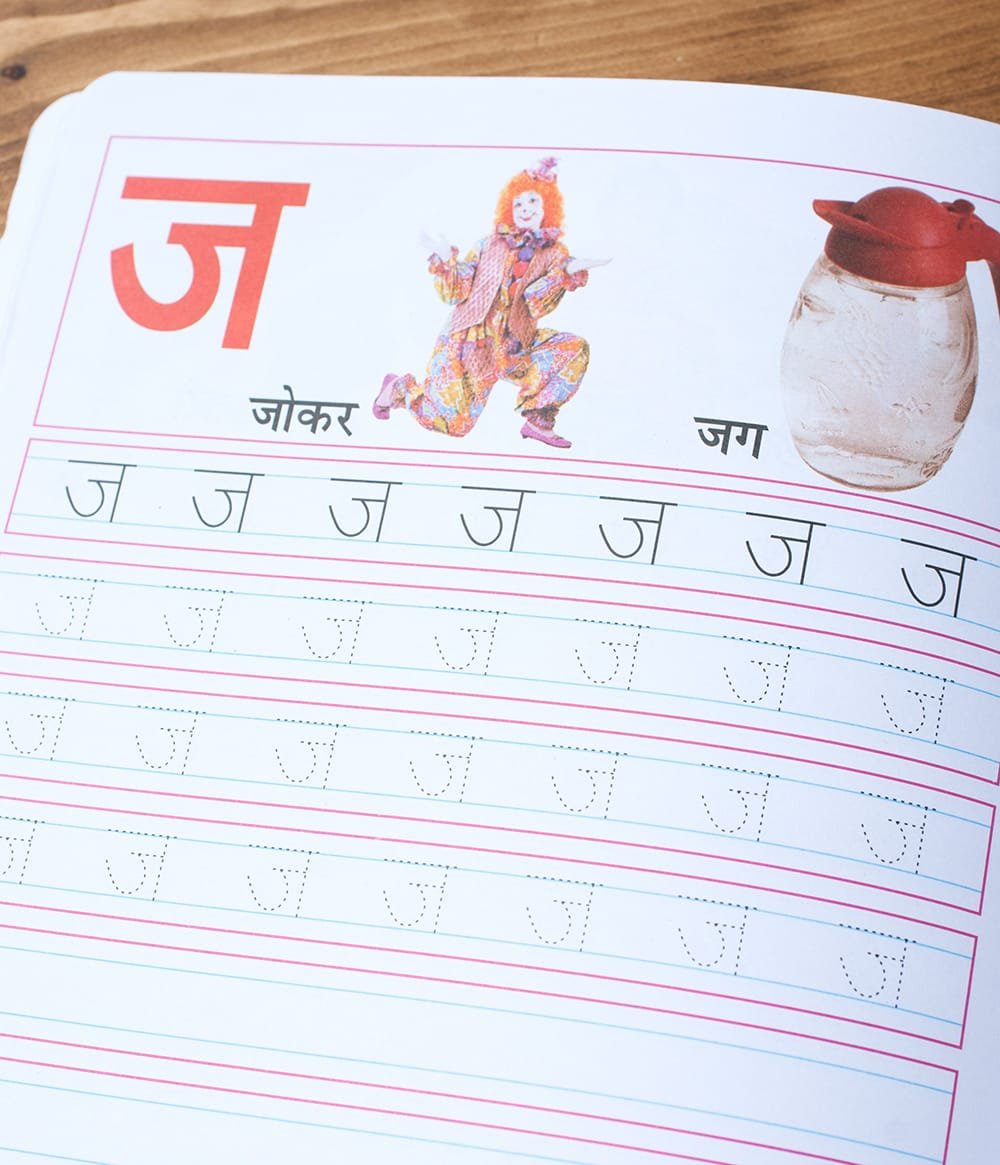 ज
जोकर जग
ज ज ज ज ज ज ज
ज ज ज ज ज ज ज
ज ज ज ज ज ज ज
ज ज ज ज ज ज ज